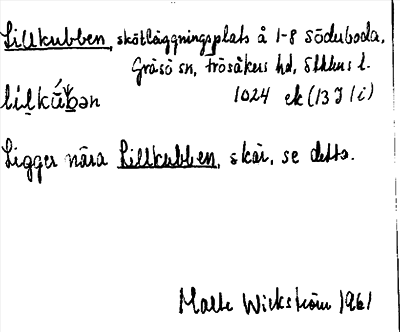 Lillkubben, skötläggningsplats å 1-8 Söduboda,
Gräsö sn, Frösåkers hd, Sthlms l.
1024 ek (13 I 1 i)
Ligger nära Lillkubben, skär, se detta.
Malte Wickström 1961